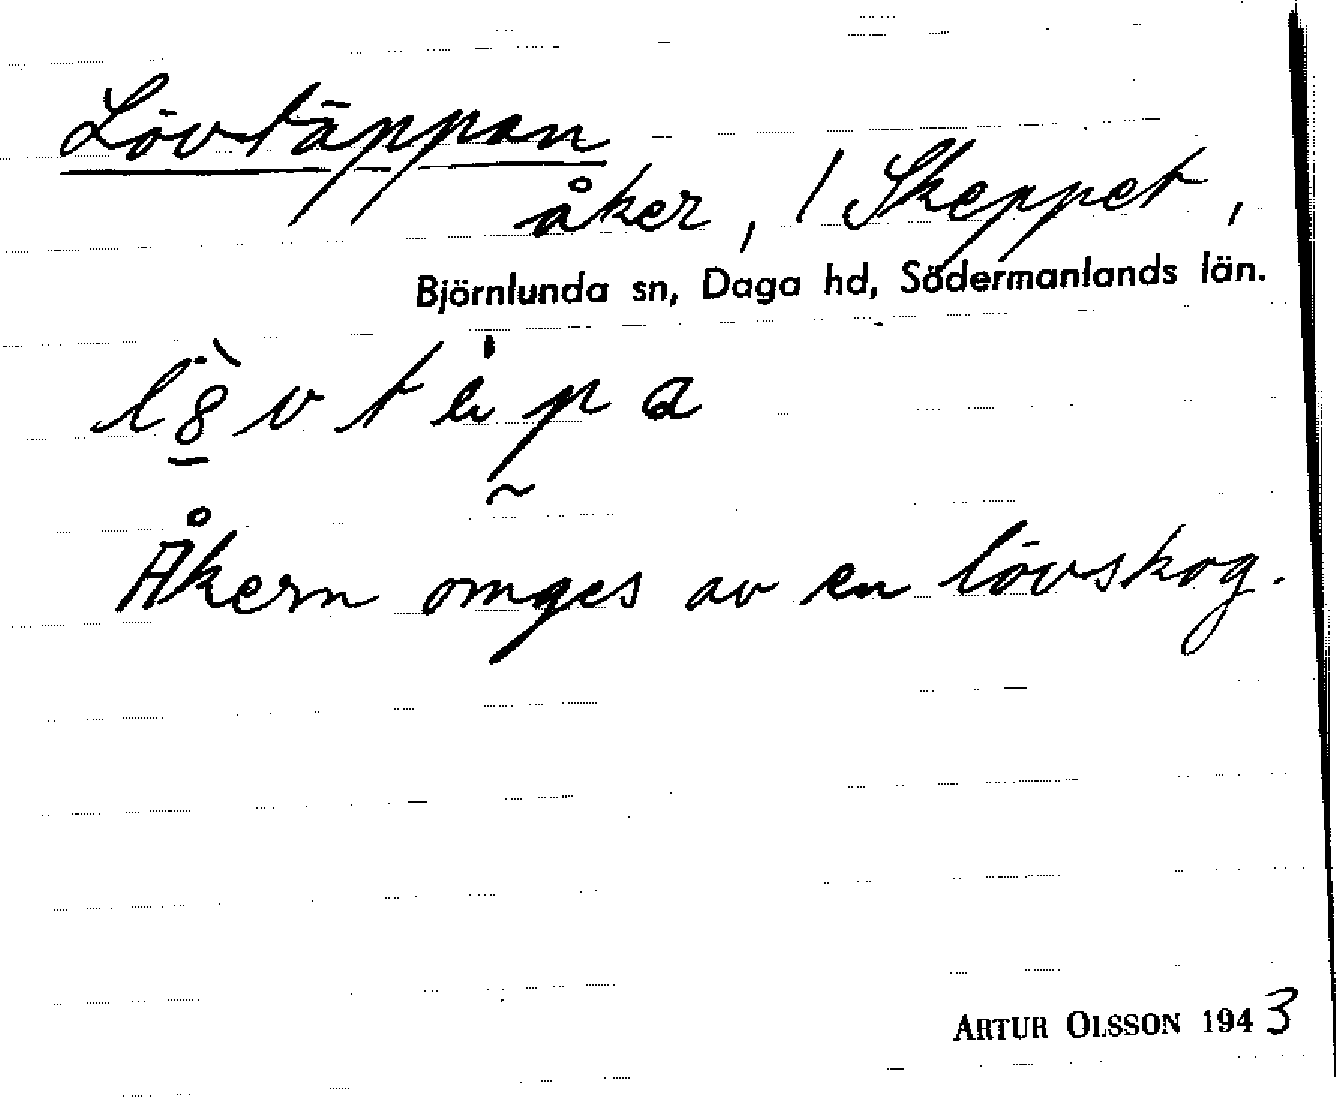 Lövtäppan
åker, / Skeppet,
Björnlunda sn, Daga hd, Södermanlands län.
Åkern omges av en lövskog.
ARTUR OLSSON 1943